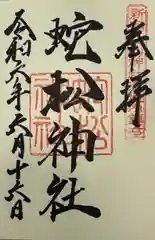 奉拝
蛇松神社
令和六年六月十六日